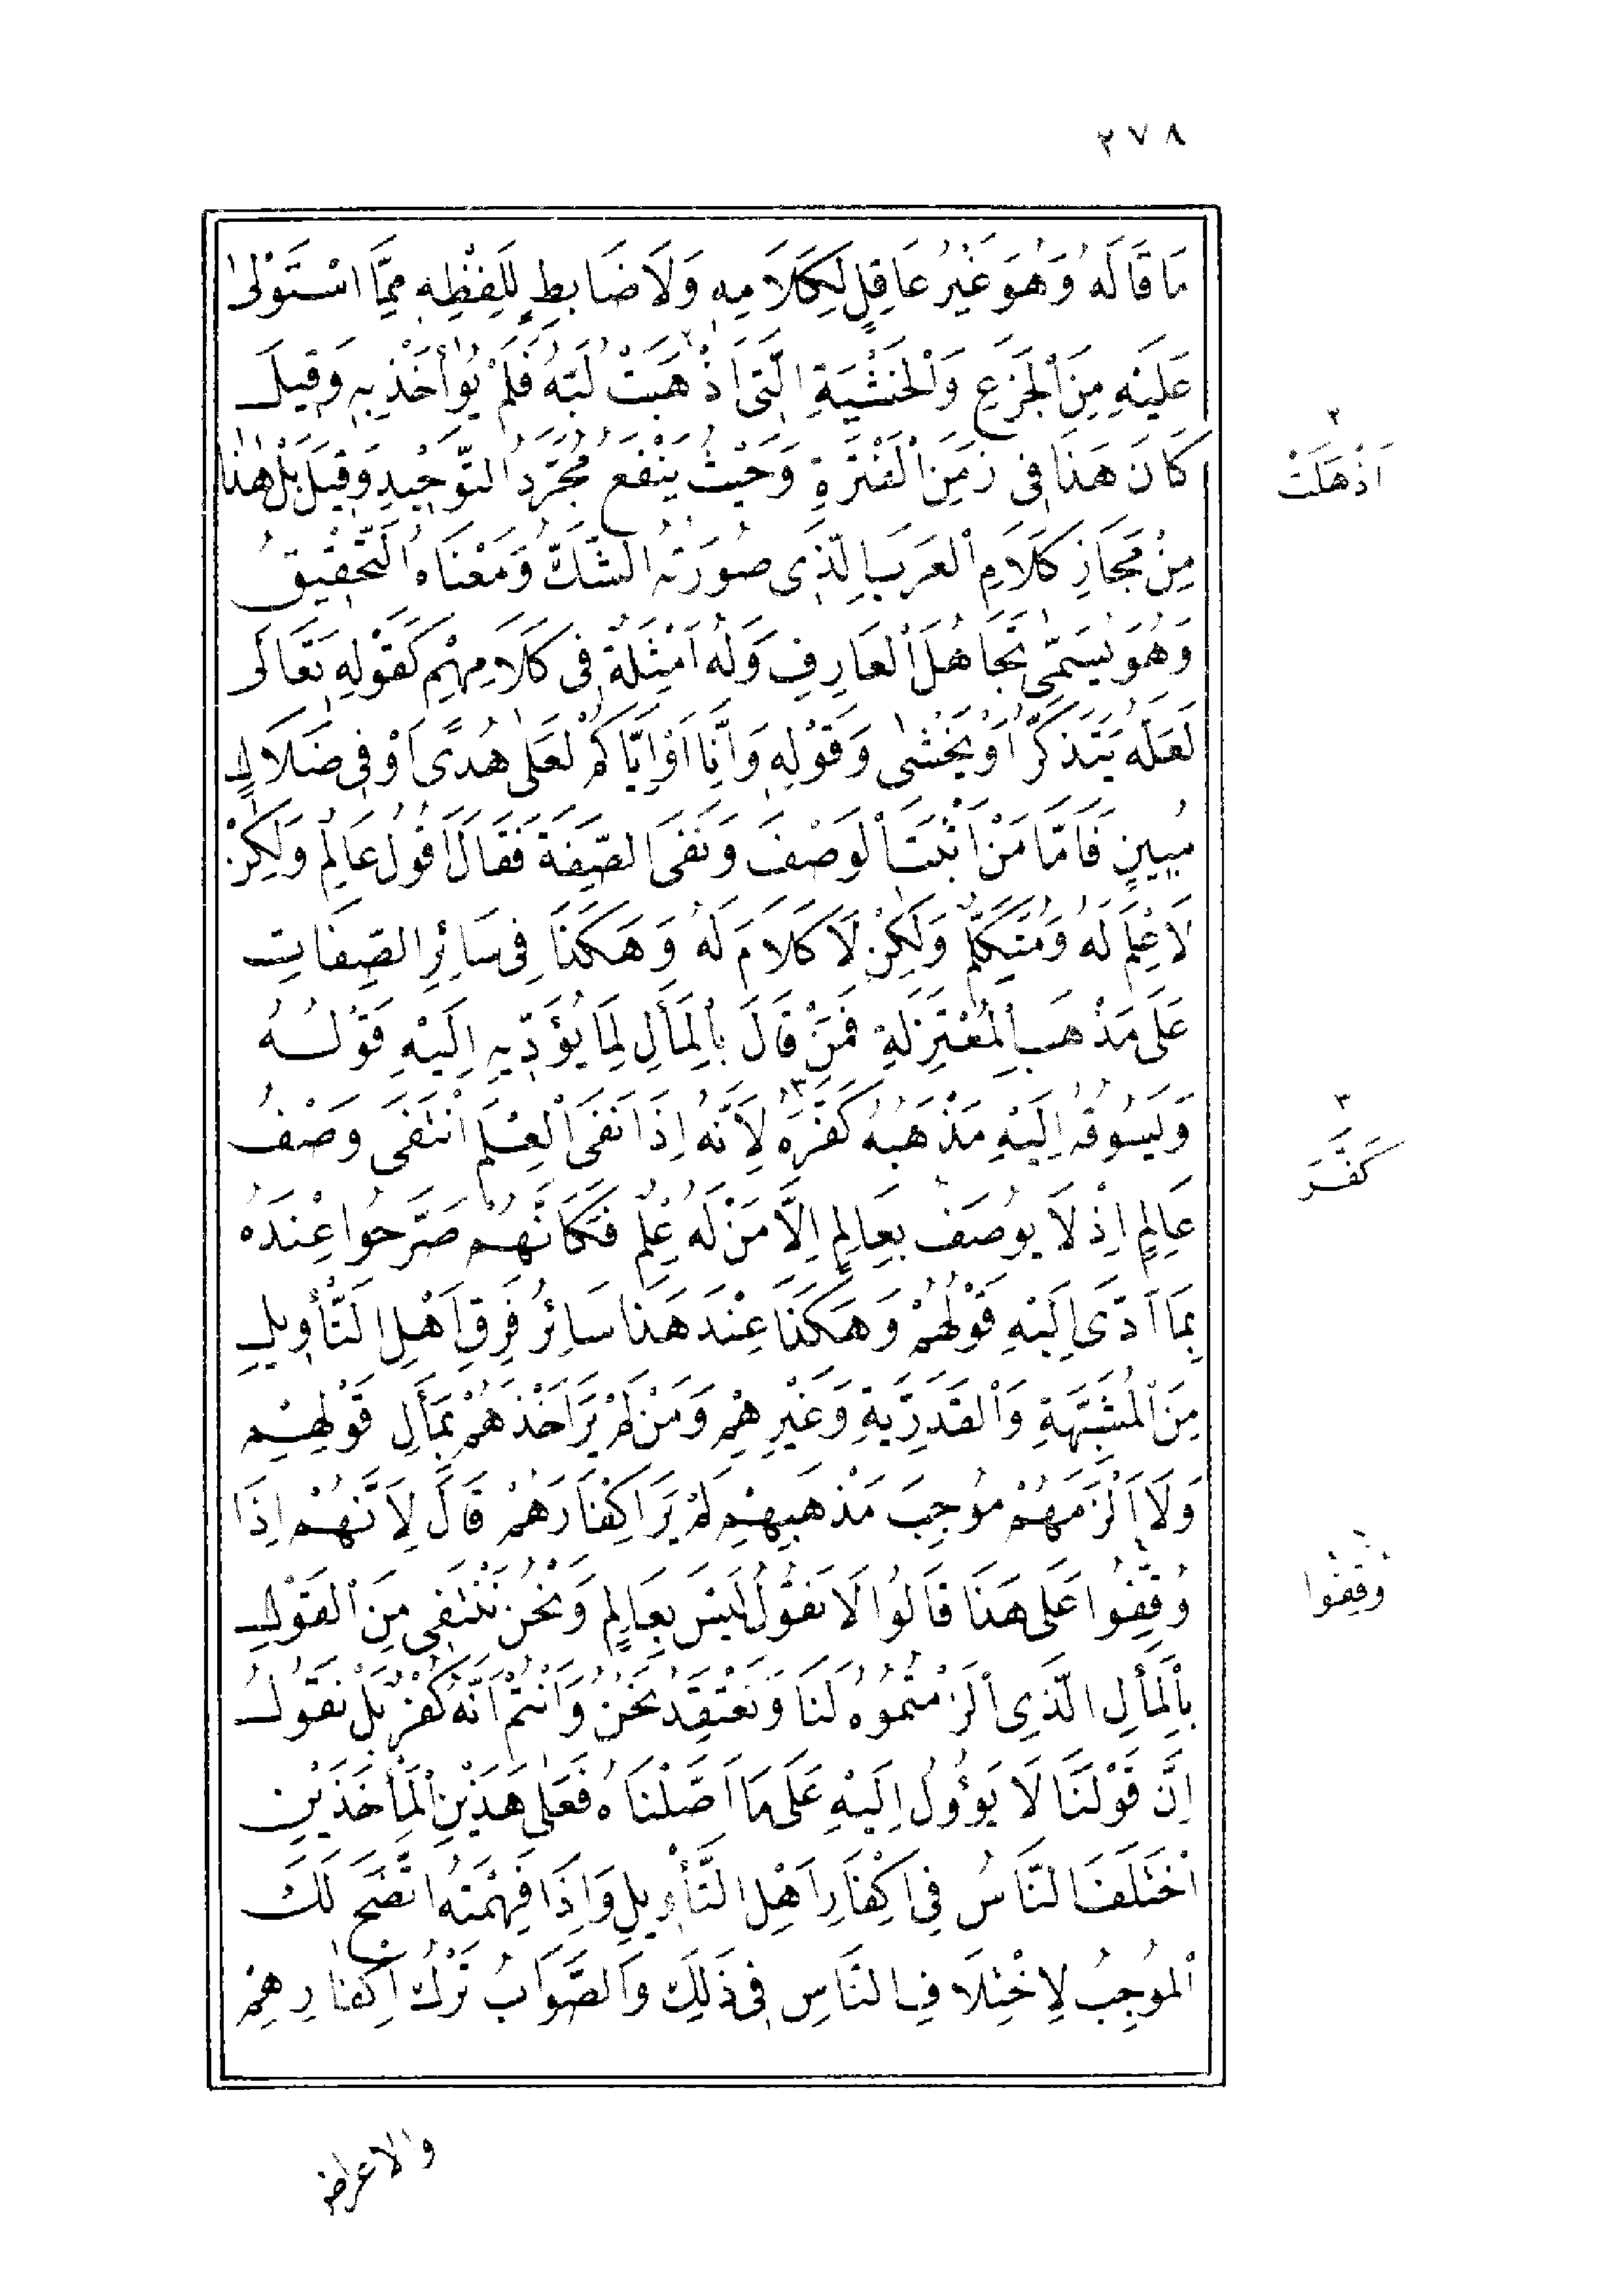 ٢٧٨
مَا قَالَهُ وَهُوَ غَيْرُ عَاقِلٍ لِكَلَامِهِ وَلَا ضَابِطٍ لِلَفْظِهِ مِمَّا اسْتَوْلٰى
عَلَيْهِ مِنَ الْجَزَعِ وَالْخَشْيَةِ الَّتِى اَذْهَبَتْ٢ لُبَّهُ فَلَمْ يُؤَاخَذْ بِهِ وَقِيلَ
كَانَ هَذَا فِى زَمَنِ الْفَتْرَةِ وَحَيْثُ يَنْفَعُ مُجَرَّدُ التَّوْحِيدِ وَقِيلَ بَلْ هٰذَا
مِنْ مَجَازِ كَلَامِ الْعَرَبِ الَّذِى صُورَتُهُ الشَّكُّ وَمَعْنَاهُ التَّحْقِيقُ
وَهُوَ يُسَمّٰى تَجَاهُلَ الْعَارِفِ وَلَهُ اَمْثِلَةٌ فِى كَلَامِهِمْ كَقَوْلِهِ تَعَالَى
لَعَلَّهُ يَتَذَكَّرُ اَوْ يَخْشٰى وَقَوْلِهِ وَاِنَّا اَوْ اِيَّاكُمْ لَعَلٰى هُدًى اَوْ فِى ضَلَالٍ
مُبِينٍ فَاَمَّا مَنْ اَثْبَتَ الْوَصْفَ وَنَفَى الصِّفَةَ فَقَالَ اَقُولُ عَالِمٌ وَلَكِنْ
لَا عِلْمَ لَهُ وَمُتَكَلِّمٌ وَلَكِنْ لَا كَلَامَ لَهُ وَهَكَذَا فِى سَائِرِ الصِّفَاتِ
عَلَى مَذْهَبِ الْمُعْتَزِلَةِ فَمَنْ قَالَ بِالْمَأٰلِ لِمَا يُؤَدِّيهِ اِلَيْهِ قَوْلُهُ
وَيَسُوقُهُ اِلَيْهِ مَذْهَبُهُ كَفَّرَهُ٣ لِاَنَّهُ اِذَا نَفَى الْعِلْمَ انْتَفَى وَصْفُ
عَالِمٍ اِذْ لَا يُوصَفُ بِعَالِمٍ اِلَّا مَنْ لَهُ عِلْمٌ فَكَاَنَّهُمْ صَرَّحُوا عِنْدَهُ
بِمَا اَدَّى اِلَيْهِ قَوْلُهُمْ وَهَكَذَا عِنْدَ هَذَا سَائِرُ فِرَقِ اَهْلِ التَّأْوِيلِ
مِنَ الْمُشَبِّهَةِ وَالْقَدَرِيَّةِ وَغَيْرِهِمْ وَمَنْ لَمْ يَرَ اَخْذَهُمْ بِمَأٰلِ قَوْلِهِمْ
وَلَا اَلْزَمَهُمْ مُوجِبَ مَذْهَبِهِمْ لَمْ يَرَ اِكْفَارَهُمْ قَالَ لِاَنَّهُمْ اِذَا
وُقِّفُوا عَلَى هَذَا قَالُوا لَا نَقُولُ لَيْسَ بِعَالِمٍ وَنَحْنُ نَنْتَفِى مِنَ الْقَوْلِ
بِالْمَأٰلِ الَّذِى اَلْزَمْتُمُوهُ لَنَا وَنَعْتَقِدُ نَحْنُ وَاَنْتُمْ اَنَّهُ كُفْرٌ بَلْ نَقُولُ
اِنَّ قَوْلَنَا لَا يَؤُولُ اِلَيْهِ عَلَى مَا اَصَّلْنَاهُ فَعَلٰى هَذَيْنِ الْمَأْخَذَيْنِ
اخْتَلَفَ النَّاسُ فِى اِكْفَارِ اَهْلِ التَّأْوِيلِ وَاِذَا فَهِمْتَهُ اتَّضَحَ لَكَ
الْمُوجِبُ لِاخْتِلَافِ النَّاسِ فِى ذَلِكَ وَالصَّوَابُ تَرْكُ اِكْفَارِهِمْ
٢
اَذْهَلَتْ
٣
كَفَّرَ
وُقِفُوا
والاعراض